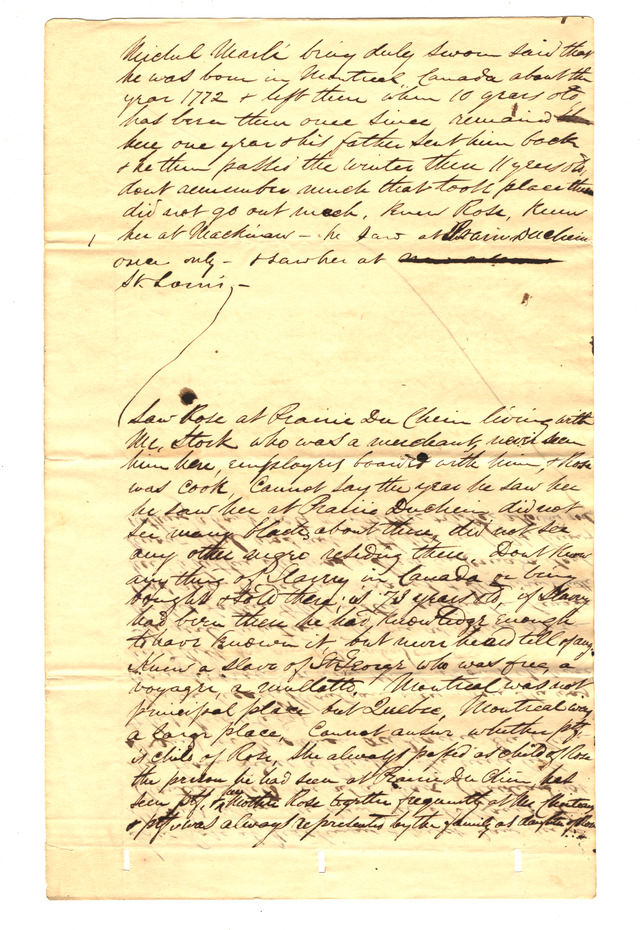 Michel Marli being duly sworn said that
he was born in Montreal Canada about the
year 1772 & left there when 10 years old
has been there once since remained
here one year & his father sent him back
& he then passed the winter there 11 years old,
dont remember much that took place there
did not go out much, Knew Rose, Knew
her at Mackinaw – he saw at Prairie Duchein
once only – & saw her at
St Louis, –
Saw Rose at Prairie Du Chein living with
Mr. Stock who was a merchant, never seen
him here, employers boarded with him, & Rose
was cook, Cannot say the year he saw her
he saw her at Prairie Duchein did not
see many blacks about there, did not see
any other negro residing there, Dont Know
anything of Slavery in Canada or being
bought & sold there, is 73 years old, if Slavery
had been there he had knowledge enough
to have known it but never heard till of any.
Knew a slave of St George who was free, a
voyager, a mullatto, Montreal was not
principal place but Quebec, Montreal was
a large place, Cannot answer whether ptf.
is child of Rose, She always passed as child of Rose
the person he had seen at Prairie Du Chien, has
seen ptf. & Mother Rose together frequently at Mrs
& ptf was always represented by the family as daughter of Rose